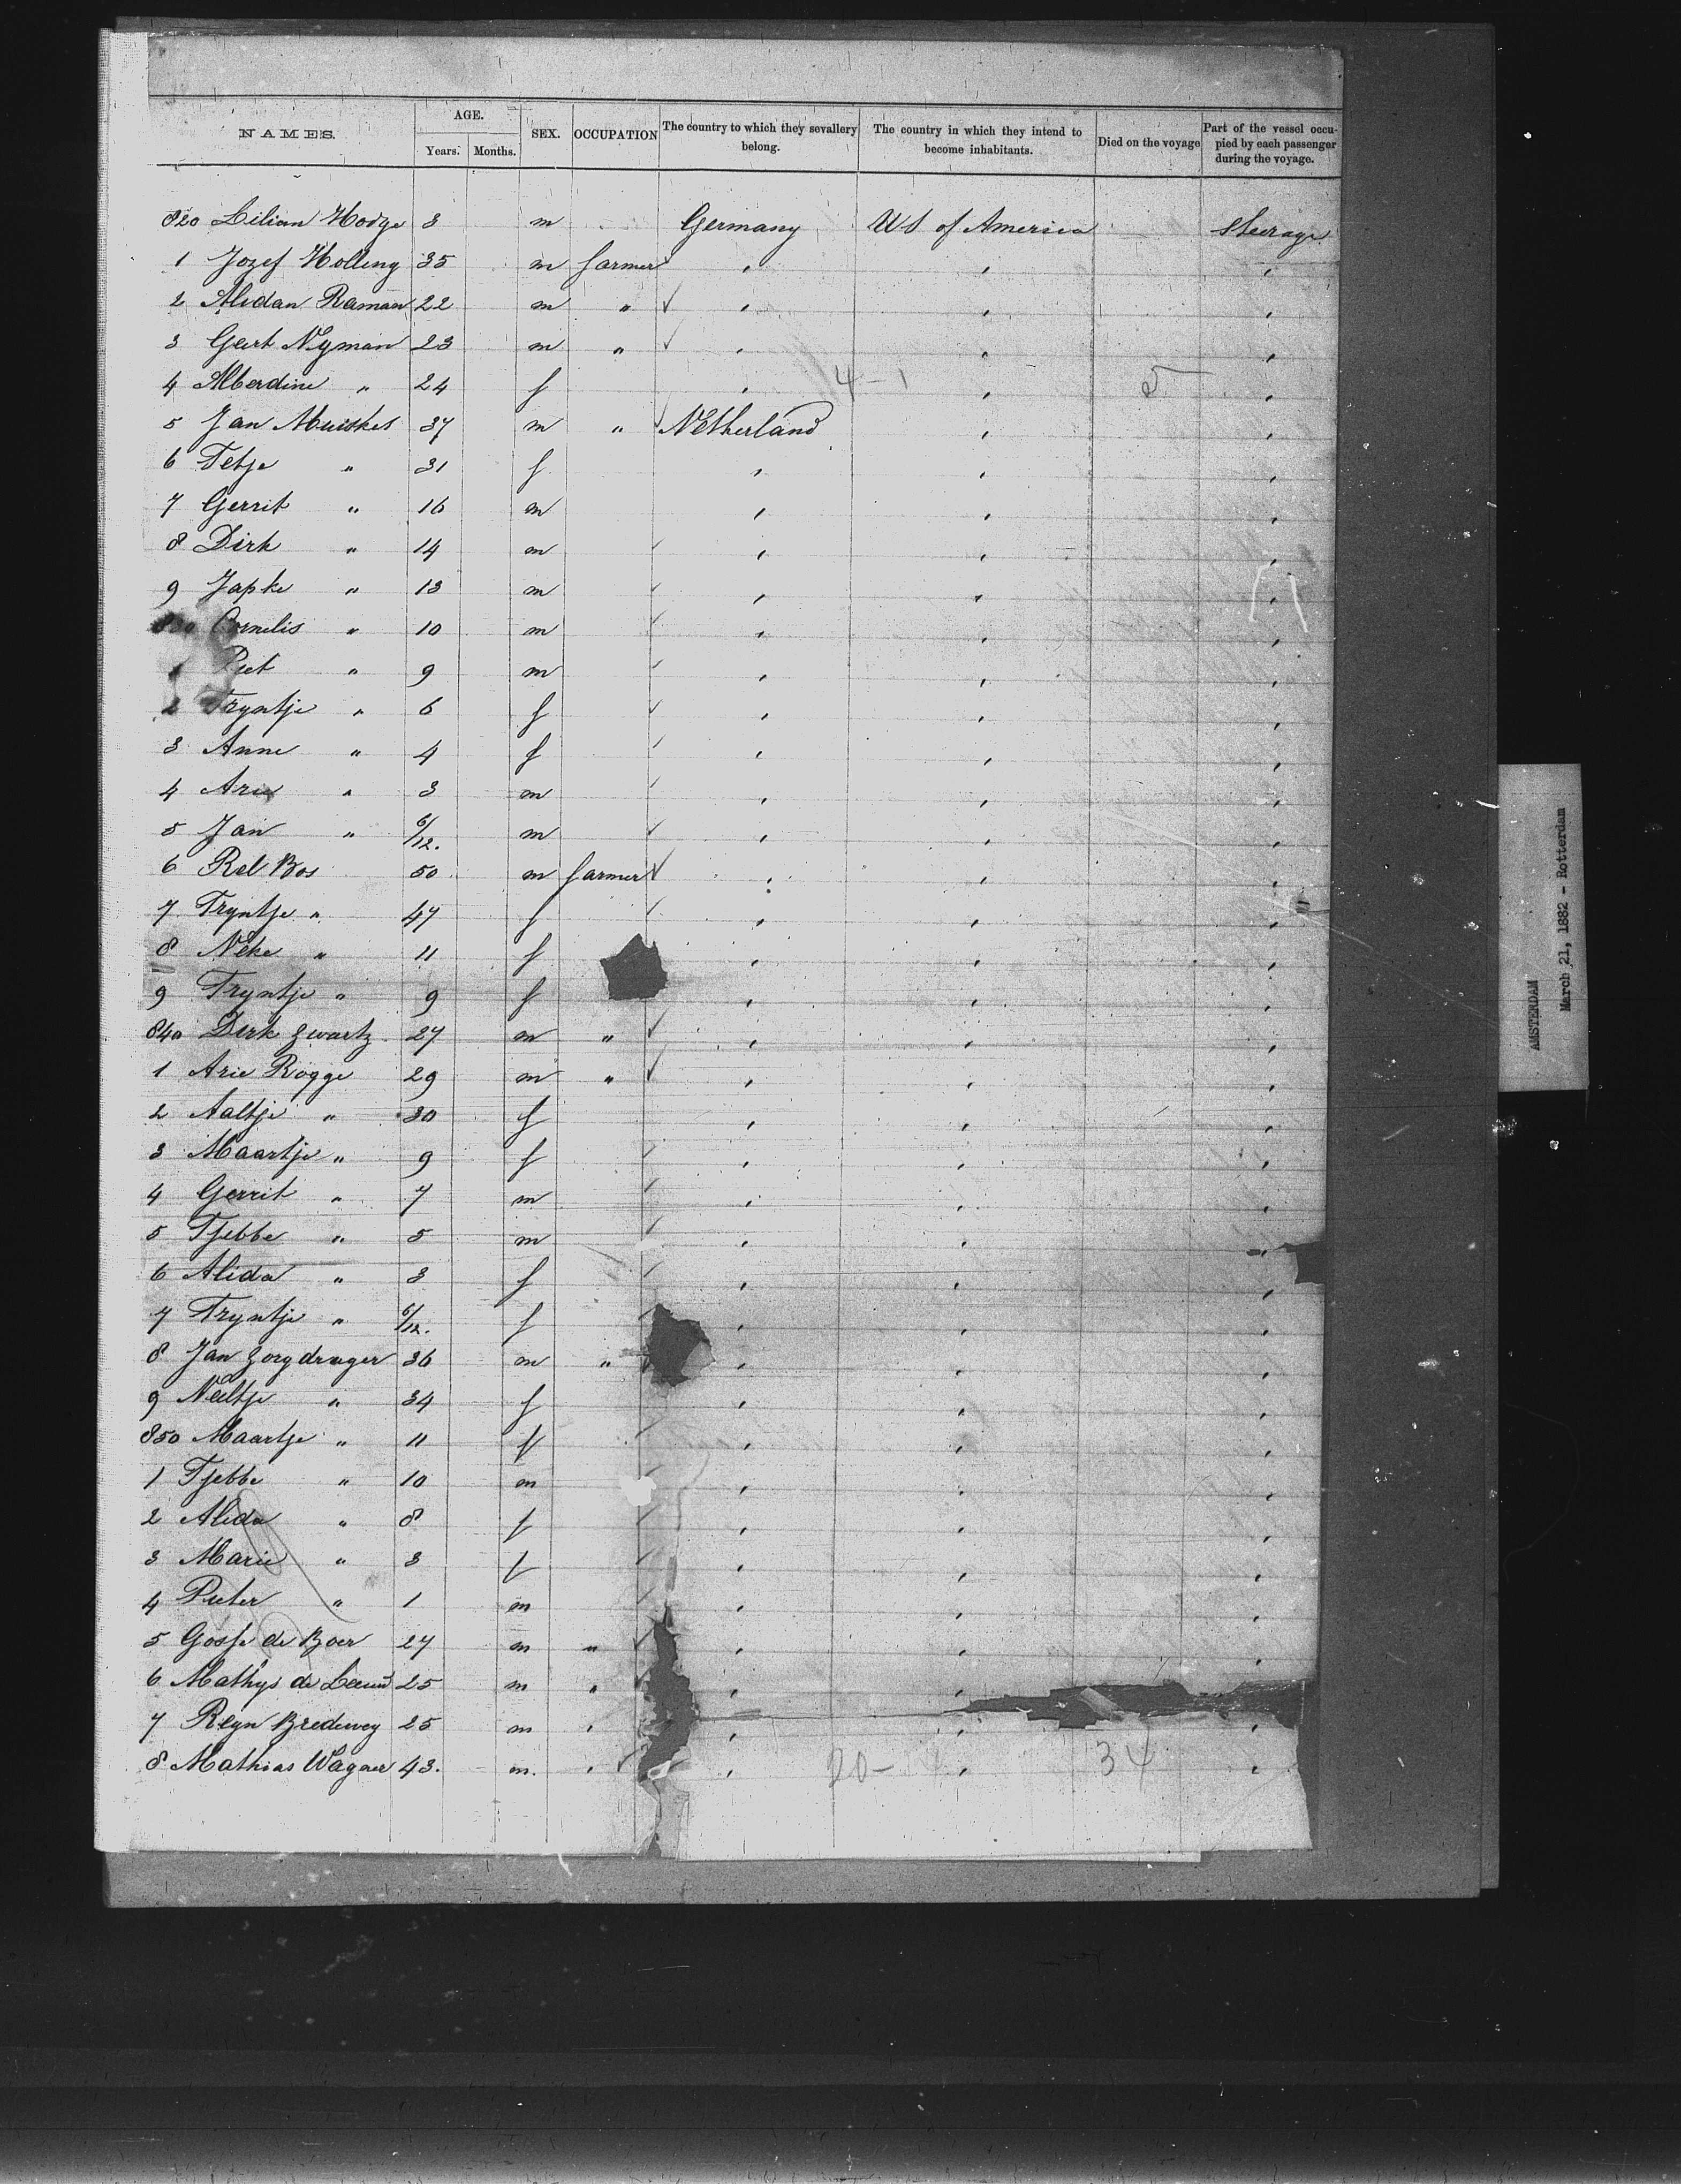 NAMES. AGE. SEX. OCCUPATION The country to which they sevallery belong. The country in which they intend to become inhabitants. Died on the voyage Part of the vessel occupied by each passenger during the voyage.
Years. Months.
820 Lilian Hodge 3 m Germany US of America Steerage
1 Jozef Holling 35 m farmer " " "
2 Alidan Raman 22 m " " " "
3 Geert Nyman 23 m " " " "
4 Alberdine " 24 f " 4-1 " 5 "
5 Jan Muiskes 37 m " Netherland " "
6 Tetje " 31 f " " "
7 Gerrit " 16 m " " "
8 Dirk " 14 m " " "
9 Japke " 13 m " " "
830 Cornelis " 10 m " " "
1 Piet " 9 m " " "
2 Tryntje " 6 f " " "
3 Anne " 4 f " " "
4 Arie " 3 m " " "
5 Jan " 6/12. m " " "
6 Rel Bos 50 m farmer " " "
7 Tryntje " 47 f " " "
8 Neke " 11 f " " "
9 Tryntje " 9 f " " "
840 Dirk Zwartz 27 m " " " "
1 Arie Rogge 29 m " " " "
2 Aaltje " 30 f " " "
3 Maartje " 9 f " " "
4 Gerrit " 7 m " " "
5 Tjebbe " 5 m " " "
6 Alida " 3 f " " "
7 Tryntje " 6/12. f " " "
8 Jan Zorgdrager 36 m " " " "
9 Neeltje " 34 f " " "
850 Maartje " 11 f " " "
1 Tjebbe " 10 m " " "
2 Alida " 8 f " " "
3 Marie " 3 f " " "
4 Pieter " 1 m " " "
5 Gosse de Boer 27 m " " " "
6 Mathys de Leeuw 25 m " " "
7 Reyn Bredewey 25 m " " " "
8 Mathias Wagner 43. m. " " 20- " 34 "
AMSTERDAM
March 21, 1882 - Rotterdam